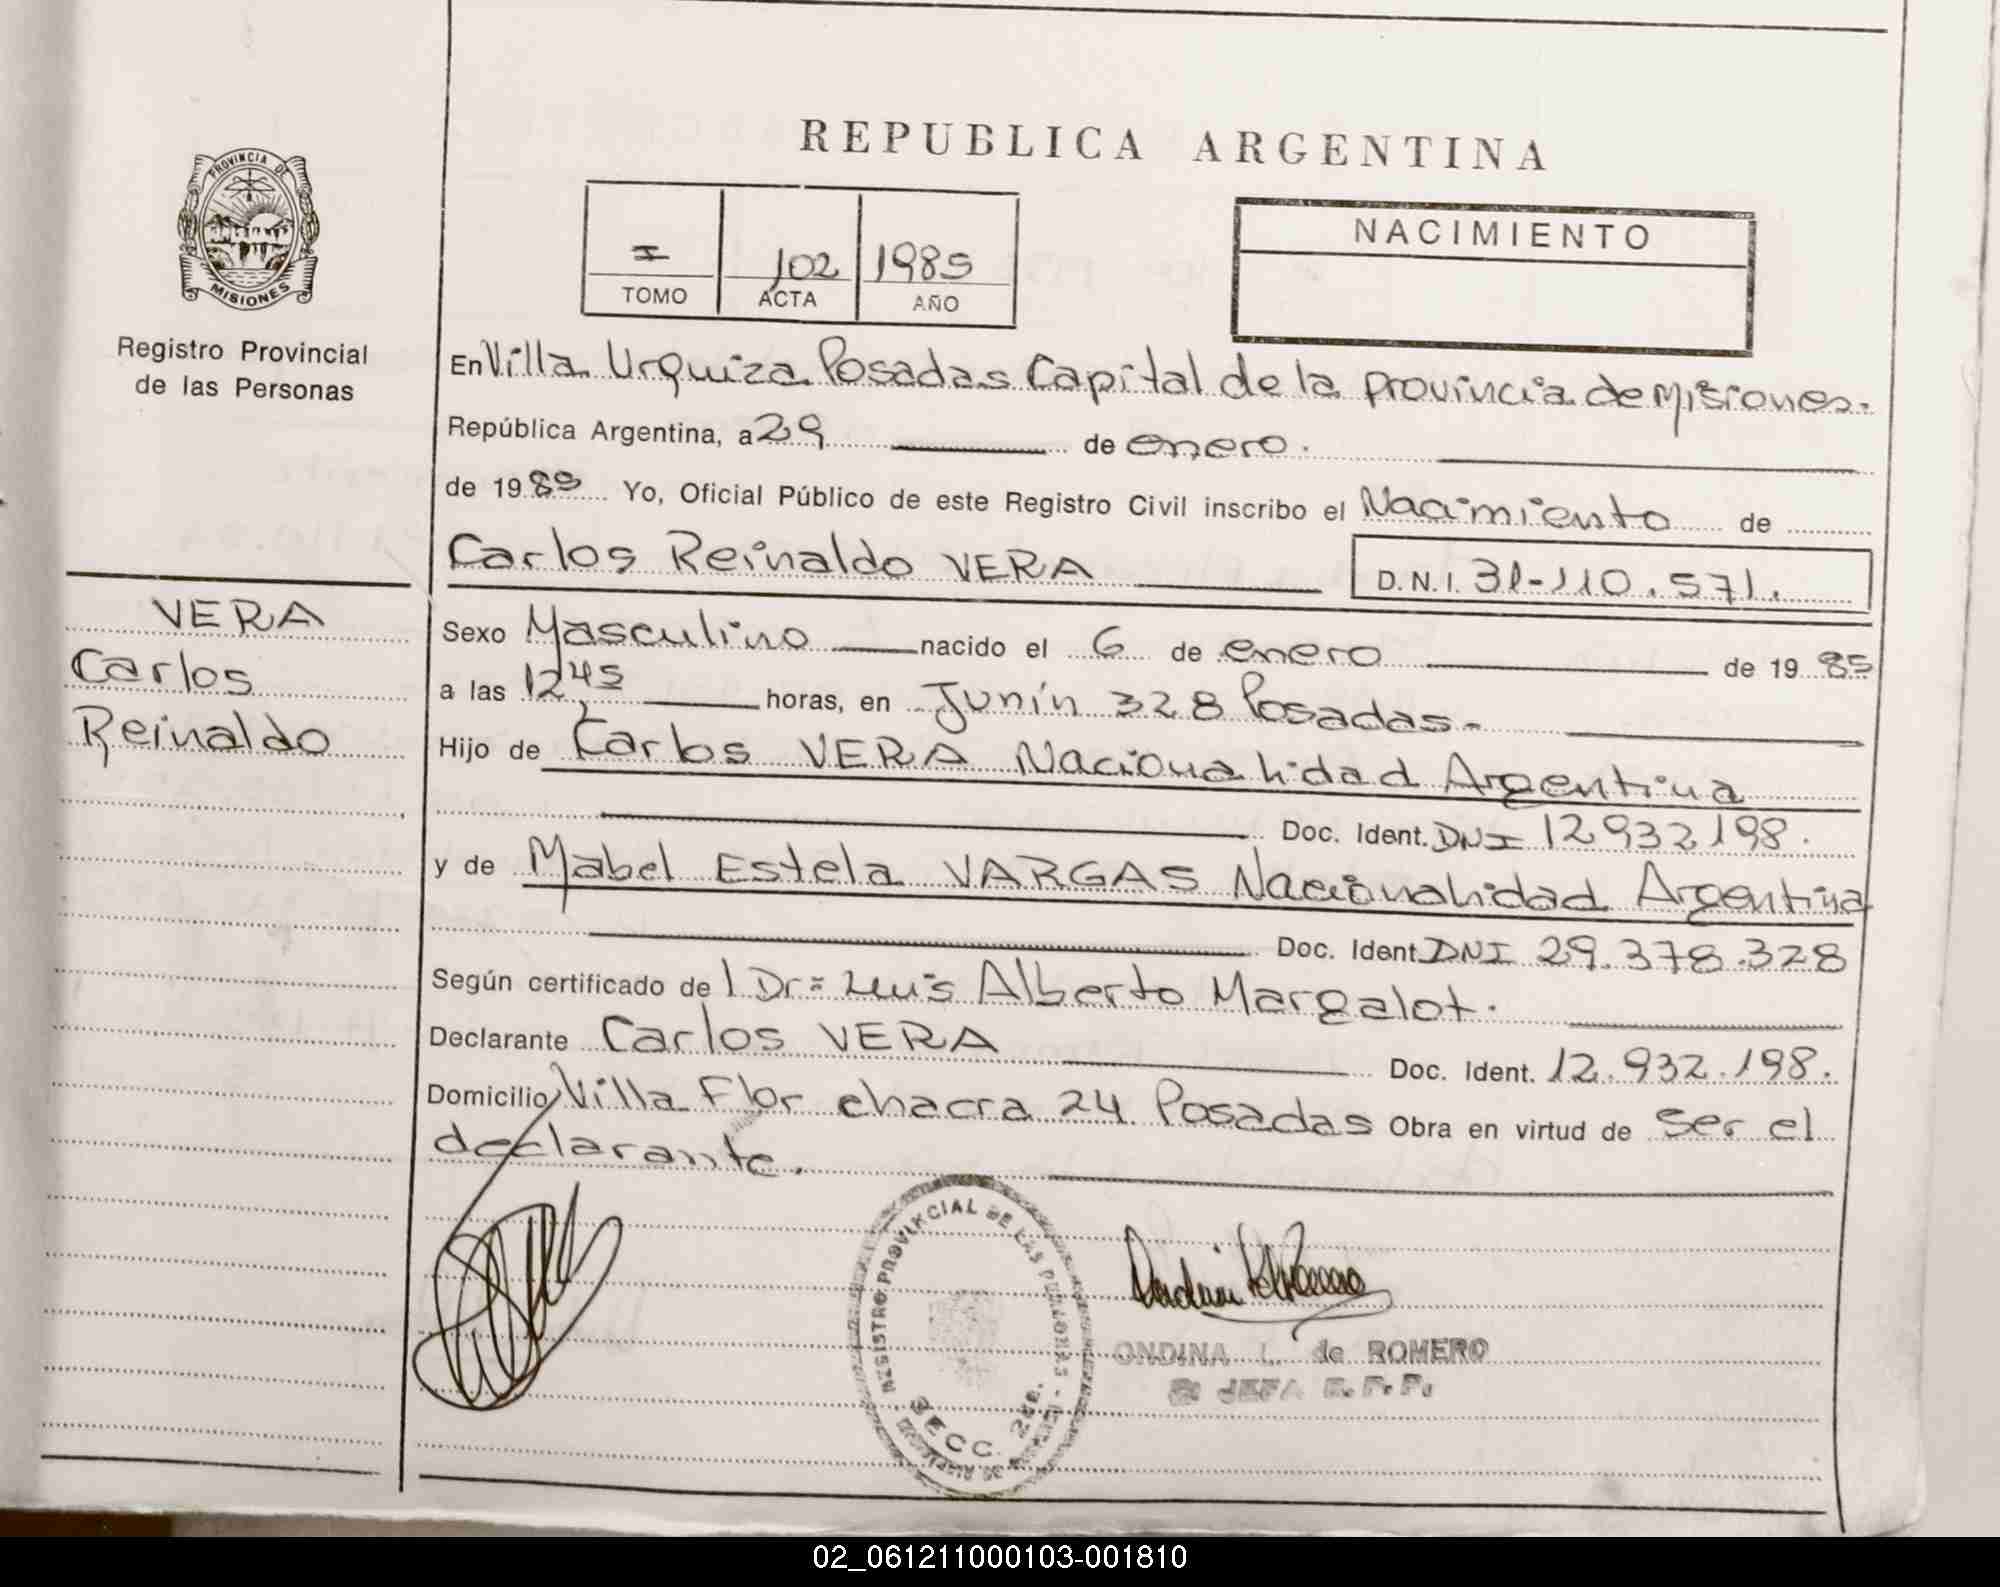 REPUBLICA ARGENTINA
PROVINCIA DE
MISIONES
Registro Provincial
de las Personas
I 102 1985
TOMO ACTA AÑO
NACIMIENTO
En Villa Urquiza Posadas Capital de la provincia de Misiones.
República Argentina, a 29 de enero.
de 1985 Yo, Oficial Público de este Registro Civil inscribo el Nacimiento de
Carlos Reinaldo VERA D.N.I. 31-110.571.
VERA
Carlos
Reinaldo
Sexo Masculino nacido el 6 de enero de 1985
a las 12,45 horas, en Junín 328 Posadas.-
Hijo de Carlos VERA Nacionalidad Argentina
Doc. Ident. DNI 12932198.
y de Mabel Estela VARGAS Nacionalidad Argentina
Doc. Ident. DNI 29.378.328
Según certificado del Dr= Luis Alberto Margalot.
Declarante Carlos VERA Doc. Ident. 12.932.198.
Domicilio Villa Flor chacra 24 Posadas Obra en virtud de ser el
declarante.
REGISTRO PROVINCIAL DE LAS PERSONAS
SECC. 2da.
ONDINA L. de ROMERO
JEFA R.P.P.
02_061211000103-001810